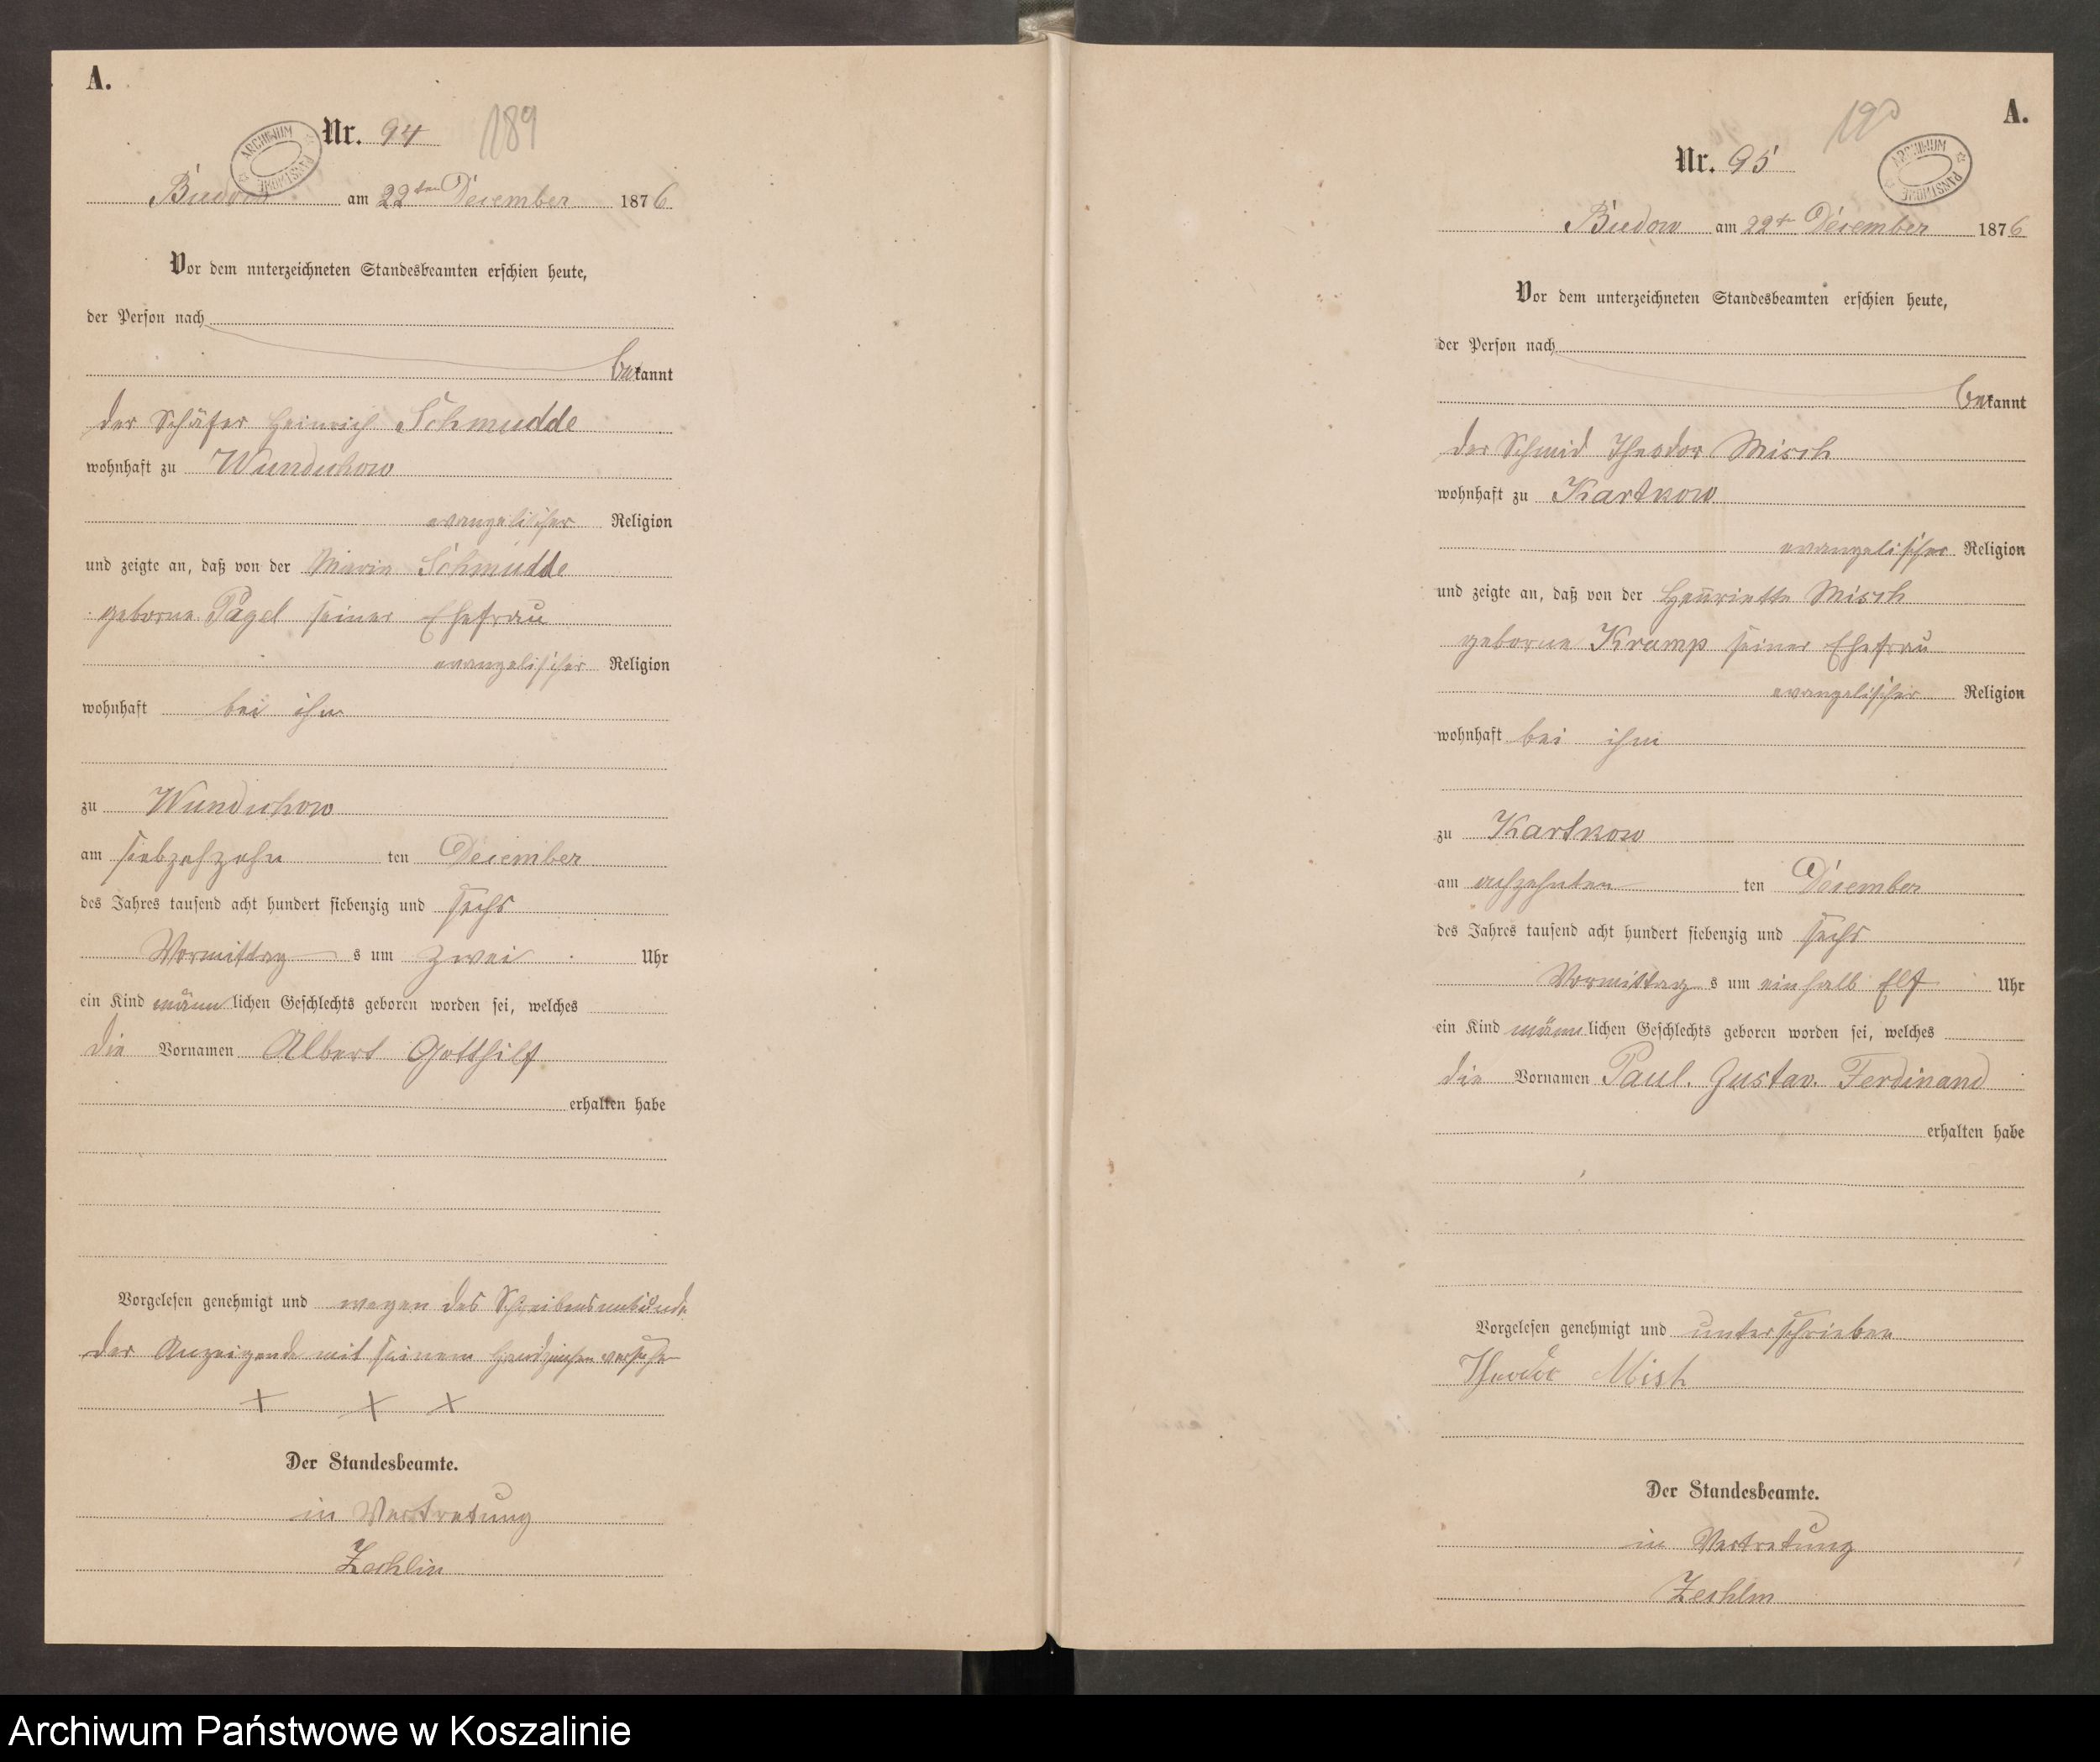 A.
Nr. 94
189
ARCHIWUM PAŃSTWOWE
Budow am 22ten December 1876
Vor dem unterzeichneten Standesbeamten erschien heute,
der Person nach
bekannt
der Schäfer Heinrich Schmudde
wohnhaft zu Wundichow
evangelischer Religion
und zeigte an, daß von der Marie Schmudde
geborne Pagel seiner Ehefrau
evangelischer Religion
wohnhaft bei ihm
zu Wundichow
am siebzehzehn ten December
des Jahres tausend acht hundert siebenzig und sechs
Vormittag s um zwei Uhr
ein Kind männlichen Geschlechts geboren worden sei, welches
die Vornamen Albert Gotthilf
erhalten habe
Vorgelesen genehmigt und wegen des Schreibensunkunde
der Anzeigende mit seinem Handzeichen versehen
+ + +
Der Standesbeamte.
in Vertretung
Zechlin
A.
190
Nr. 95
ARCHIWUM PAŃSTWOWE
Budow am 22ten December 1876
Vor dem unterzeichneten Standesbeamten erschien heute,
der Person nach
bekannt
der Schmid Theodor Misch
wohnhaft zu Kartkow
evangelischer Religion
und zeigte an, daß von der Henriette Misch
geborne Kramp seiner Ehefrau
evangelischer Religion
wohnhaft bei ihm
zu Kartkow
am achzehnten ten December
des Jahres tausend acht hundert siebenzig und sechs
Vormittag s um ein halb Elf Uhr
ein Kind männlichen Geschlechts geboren worden sei, welches
die Vornamen Paul. Gustav. Ferdinand
erhalten habe
Vorgelesen genehmigt und unterschrieben
Theodor Mish
Der Standesbeamte.
in Vertretung
Zechlin
Archiwum Państwowe w Koszalinie